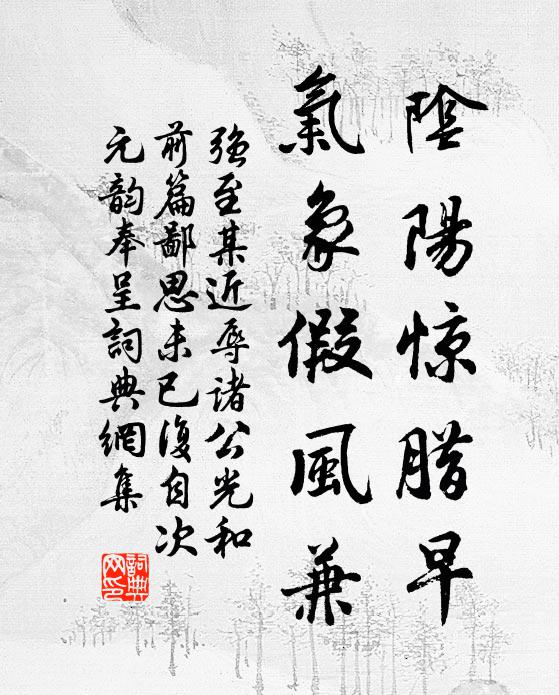 陰陽惊腊早
氣象假風兼
强至某近辱诸公光和
前篇鄙思未已復自次
元韵奉呈詞典網集
詞典
网印